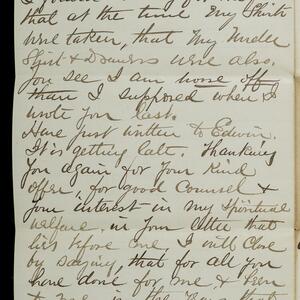 that at the time my Shirts
were taken, that my under
Shirt & Drawers were also.
You see I am worse off
than I supposed when I
wrote you last.
Have just written to Edwin.
It is getting late. Thanking
you again for your kind
offer, for good Counsel &
your interest in my Spiritual
welfare, in your letter that
lies before me, I will close
by saying, that for all you
have done for me & been
to me